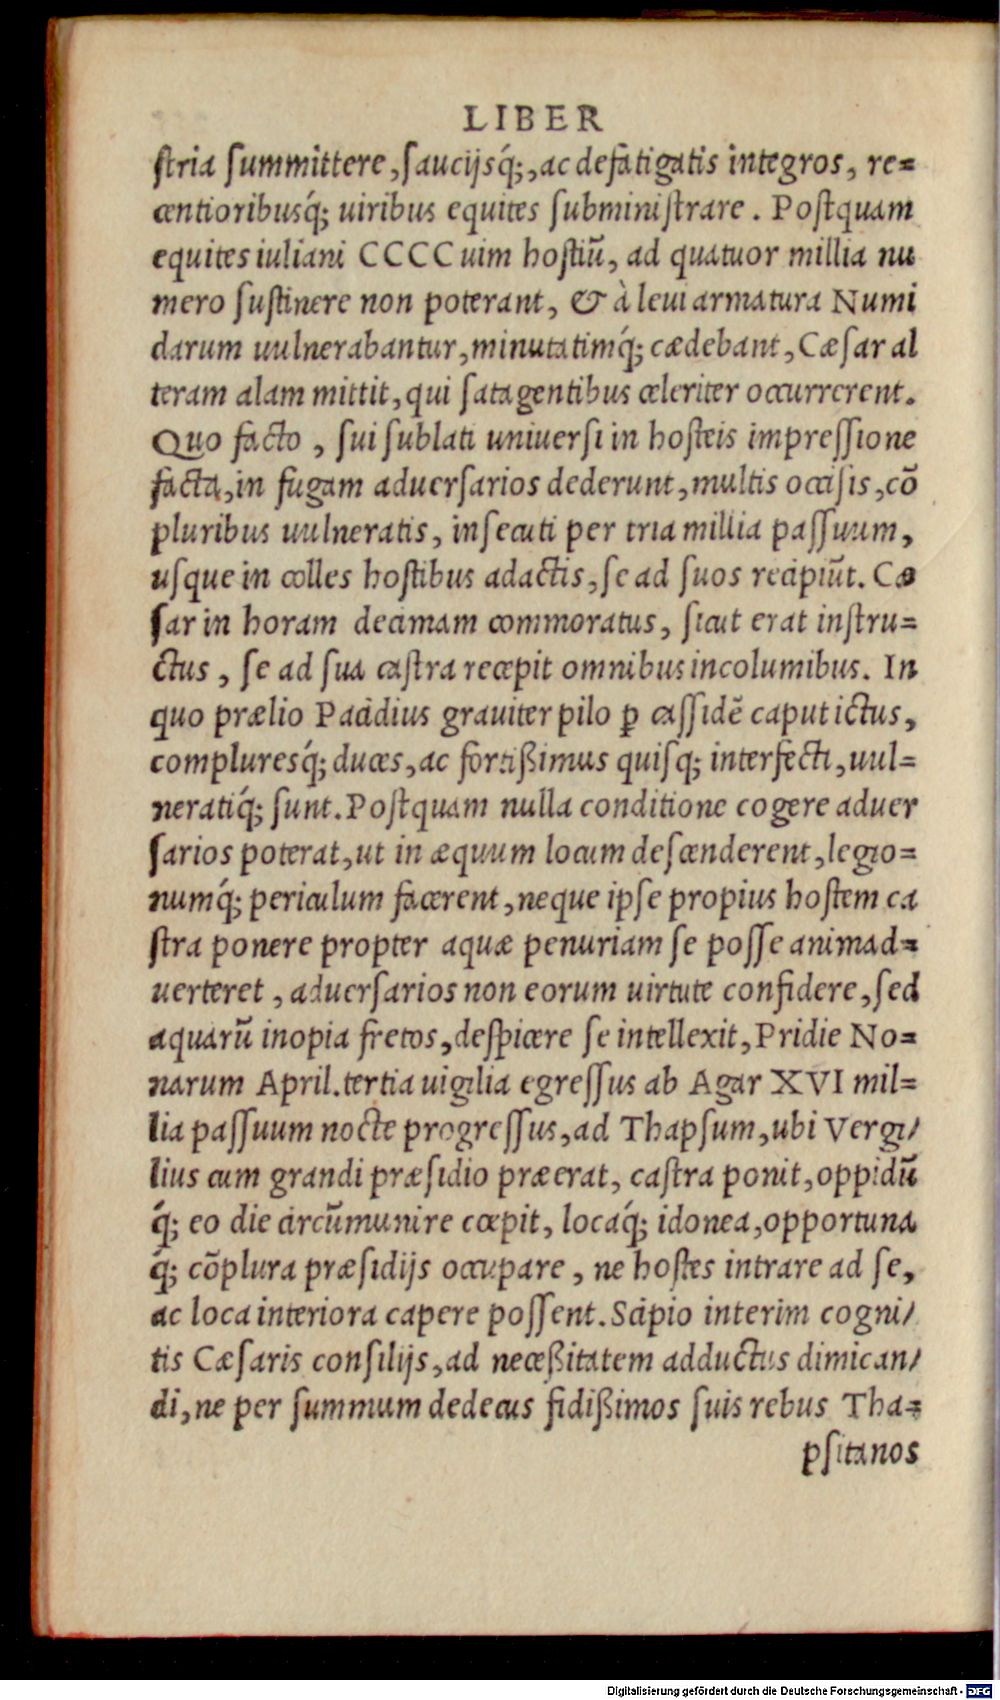 LIBER
ſtria ſummittere, ſaucijsq́;, ac defatigatis integros, re=
centioribusq́; uiribus equites ſubminiſtrare. Poſtquam
equites iuliani CCCC uim hoſtiũ, ad quatuor millia nu
mero ſuſtinere non poterant, & à leui armatura Numi
darum uulnerabantur, minutatimq́; cædebant, Cæſar al
teram alam mittit, qui ſatagentibus celeriter occurrerent.
Quo facto, ſui ſublati uniuerſi in hoſteis impreſſione
facta, in fugam aduerſarios dederunt, multis occiſis, cõ
pluribus uulneratis, inſecuti per tria millia paſſuum,
uſque in colles hoſtibus adactis, ſe ad ſuos recipiũt. Cæ
ſar in horam decimam commoratus, ſicut erat inſtru=
ctus, ſe ad ſua caſtra recepit omnibus incolumibus. In
quo prælio Pacidius grauiter pilo ꝑ caſſidẽ caput ictus,
compluresq́; duces, ac fortißimus quiſq; interfecti, uul=
neratiq́; ſunt. Poſtquam nulla conditione cogere aduer
ſarios poterat, ut in æquum locum deſcenderent, legio=
numq́; periculum facerent, neque ipſe propius hoſtem ca
ſtra ponere propter aquæ penuriam ſe poſſe animad=
uerteret, aduerſarios non eorum uirtute confidere, ſed
aquarũ inopia fretos, deſpicere ſe intellexit, Pridie No=
narum April. tertia uigilia egreſſus ab Agar XVI mil=
lia paſſuum nocte progreſſus, ad Thapſum, ubi Vergi/
lius cum grandi præſidio præerat, caſtra ponit, oppidũ
q́; eo die circũmunire cœpit, locaq́; idonea, opportuna
q́; cõplura præſidijs occupare, ne hoſtes intrare ad ſe,
ac loca interiora capere poſſent. Scipio interim cogni/
tis Cæſaris conſilijs, ad neceßitatem adductus dimican/
di, ne per ſummum dedecus fidißimos ſuis rebus Tha=
pſitanos
Digitalisierung gefördert durch die Deutsche Forschungsgemeinschaft - DFG